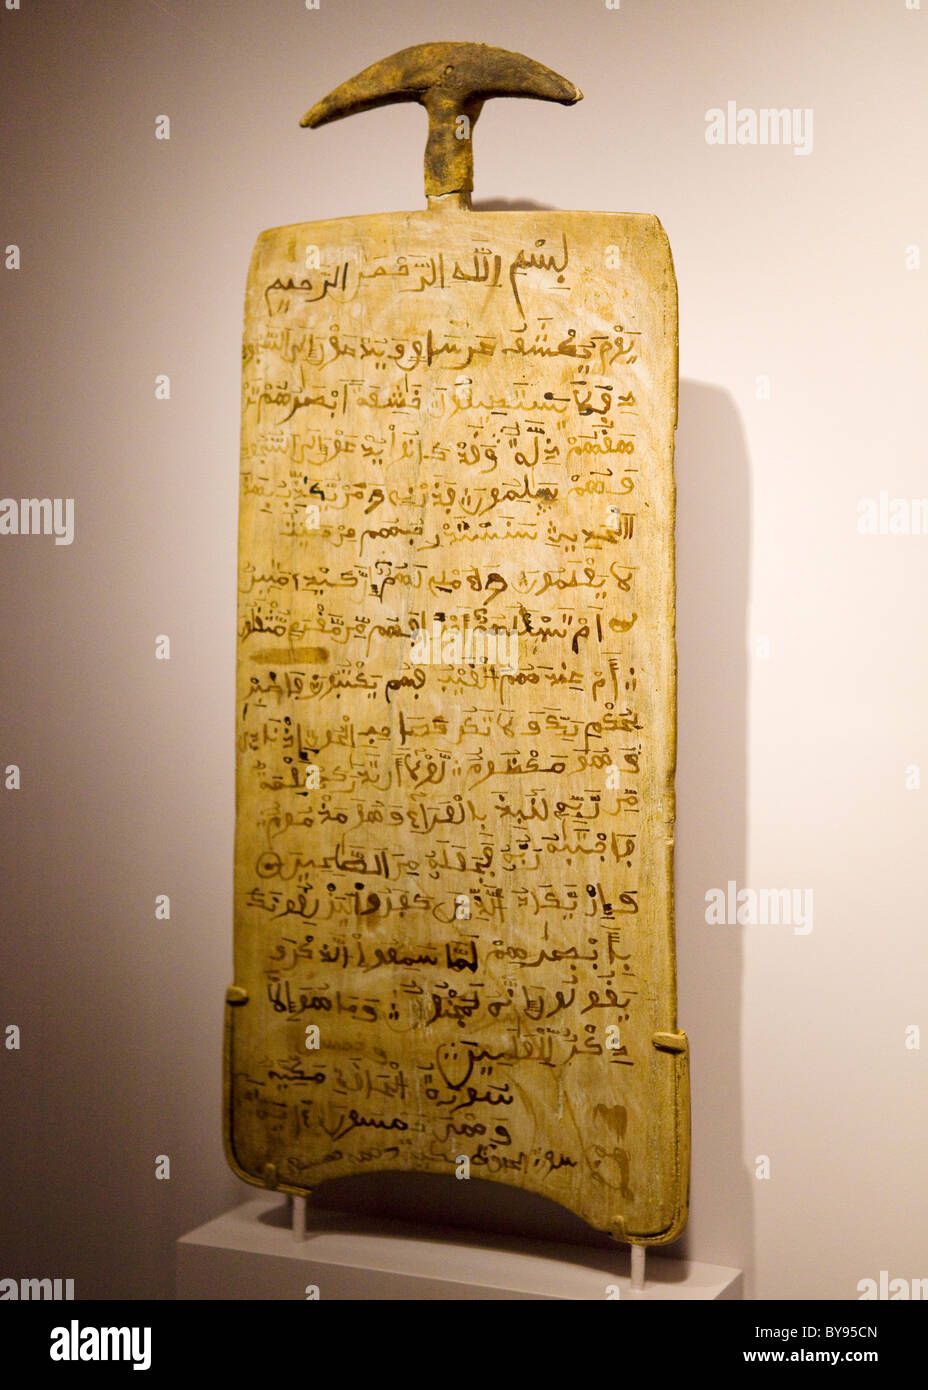 بِسْمِ اللّٰه الرَّحْمٰن الرحيم
يَوْمَ يُكْشَفُ عن ساق ويدعون الى السجود
فلا يَسْتَطيعون خٰشعةً ابصرهم تر
هقهم ذِلَّةٌ وَقَدْ كانوا يُدْعَوْن الى السُّجود
وَهُمْ سلمون فذرني ومن يكذب بهذا
الْحديث سَنَسْتَدْرِجهم مِنْ حَيْثُ
لا يَعْلمون واملي لَهُمْ ان كَيْدي متين
اَمْ تَسْئلهم اجرا فهم من مَّغْرم مُّثْقلون
اَمْ عِنْدَهُمُ الْغَيْبُ فَهُمْ يَكْتُبون فاصبر
لِحُكْم رَبِّكَ وَلا تَكُن كصاحب الحُوت اذ نادى
وَهُوَ مَكْظوم لَوْلا أن تَدٰركه نِعْمة
مِّن رَّبِّه لنُبِذَ بالْعَراء وَهُوَ مَذْموم
فاجْتَبٰهُ رَبُّهُ فَجَعَلَهُ مِنَ الصّٰلحين
وَإن يَّكاد الّذين كَفروا لَيُزْلِقونك
بأبْصٰرهمْ لَمَّا سَمِعُوا الذّكر و
يَقُولون إنّه لَمَجْنون وَمَا هُوَ إلّا
ذكر لِّلْعٰلمين
سورة الحاقة مكية
alamy
Image ID: BY95CN
www.alamy.com